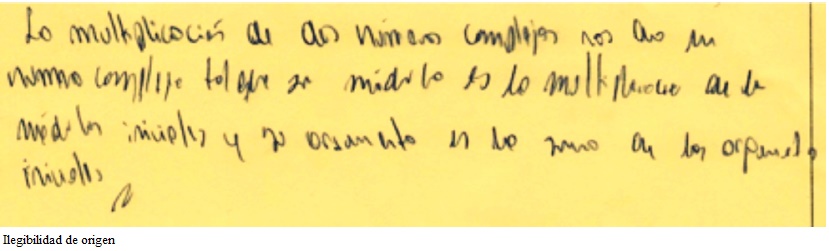 La multiplicación de dos números complejos nos da un
número complejo tal que su módulo es la multiplicación de los
módulos iniciales y su argumento es la suma de los argumentos
iniciales
Ilegibilidad de origen